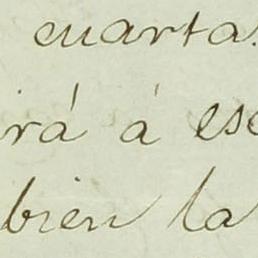 cuarta.
irá á ese
bien la